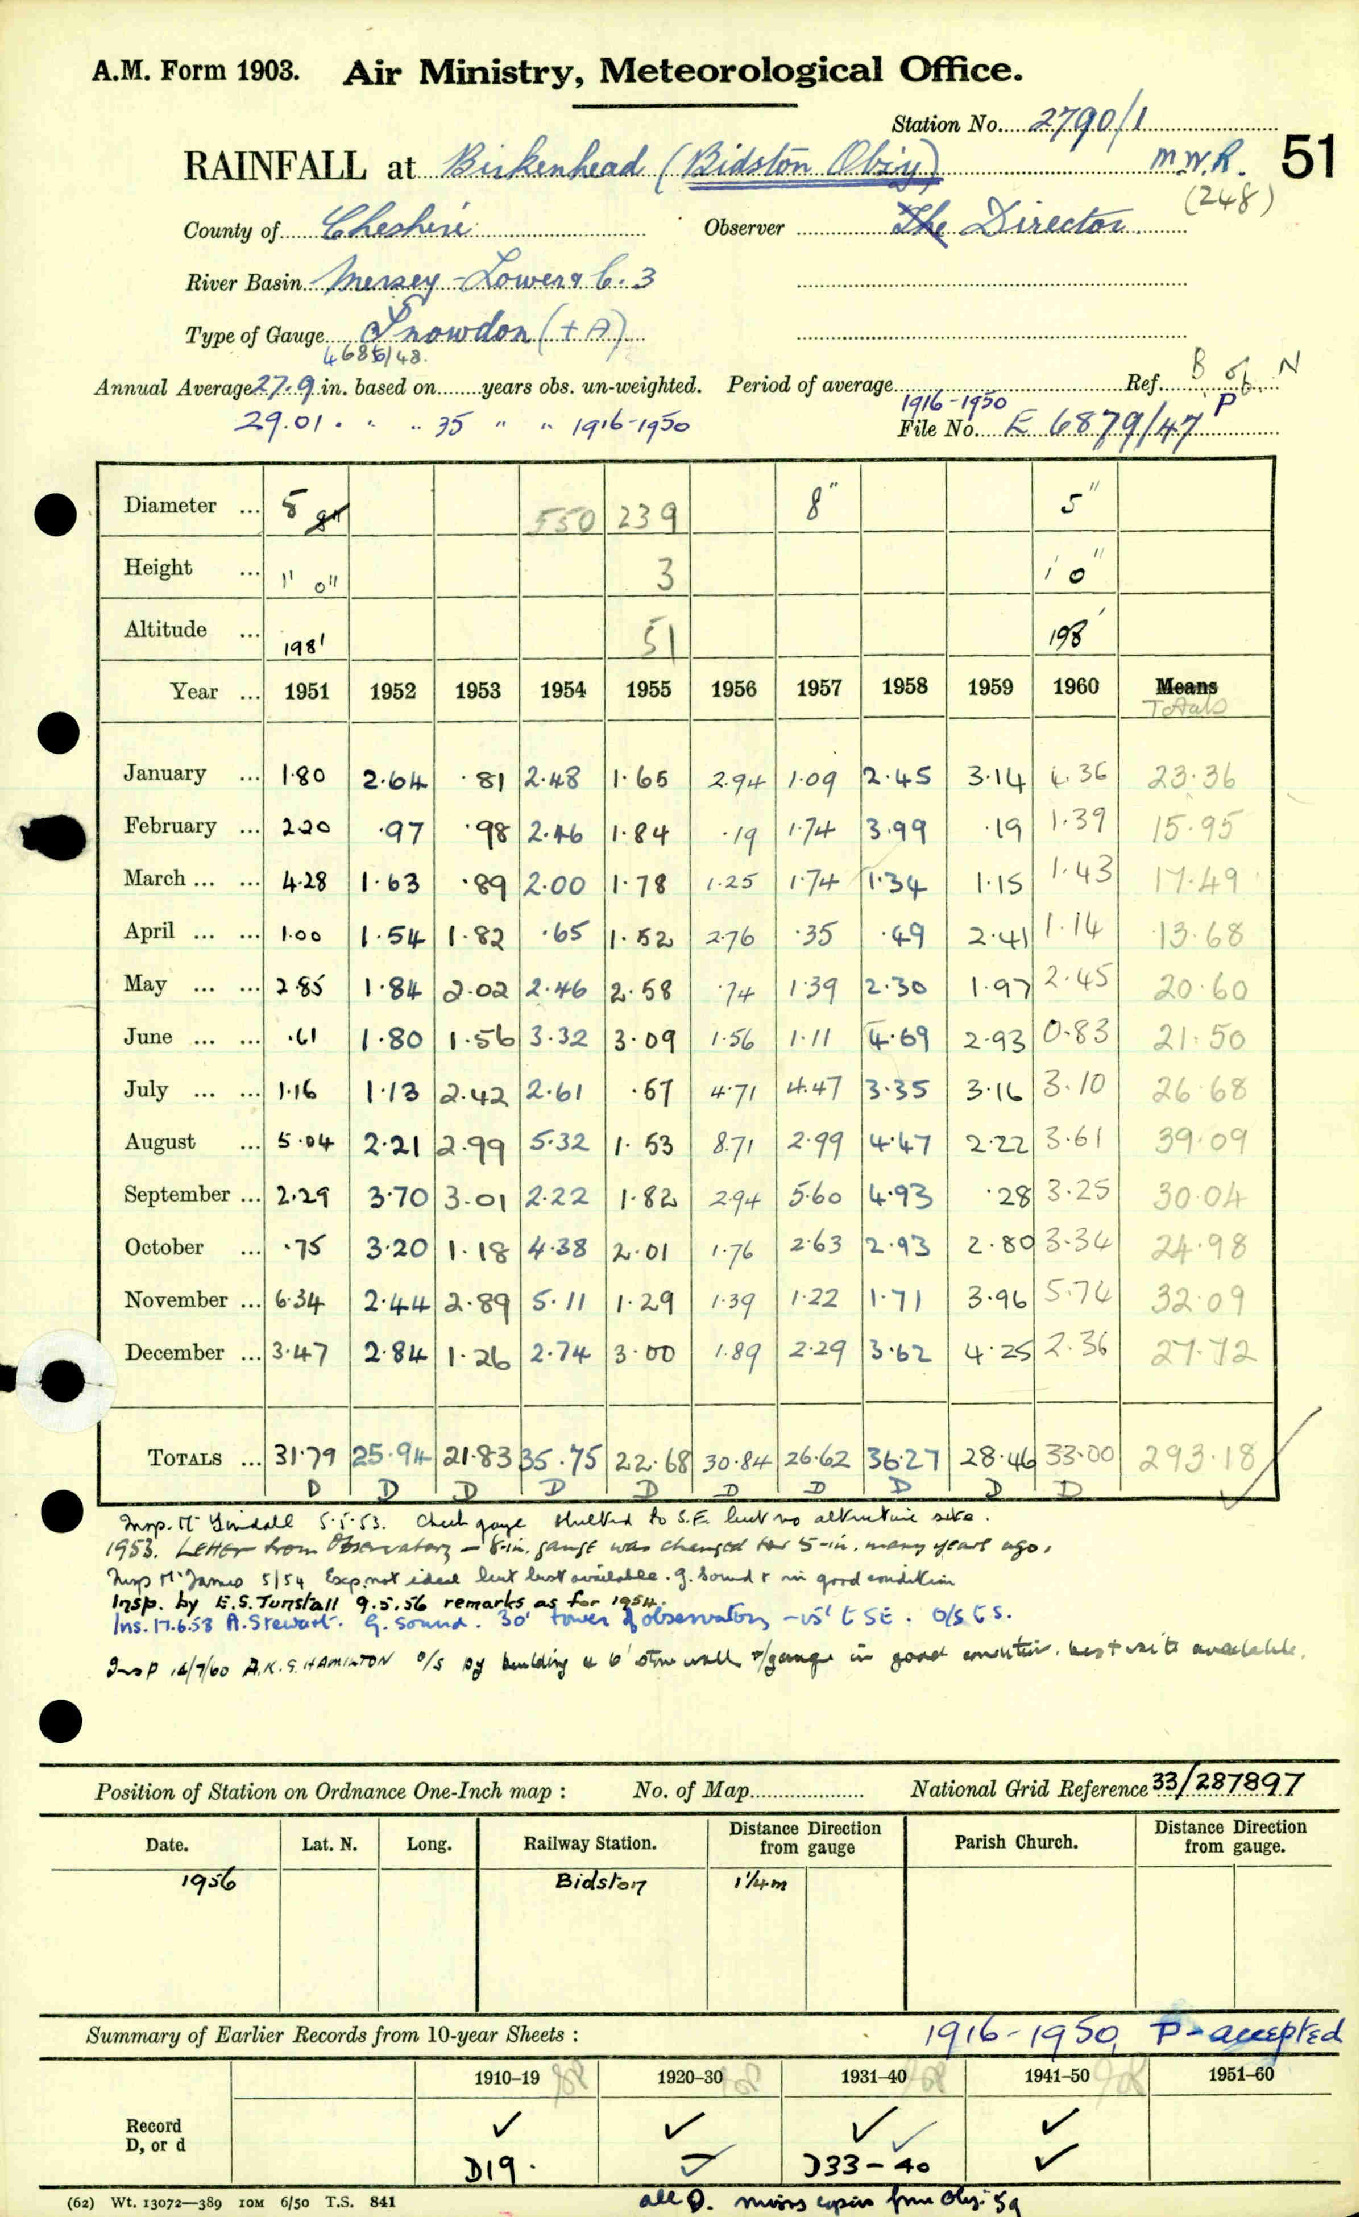 A.M. Form 1903. Air Ministry, Meteorological Office.
Station No. 2790/1
RAINFALL at Birkenhead (Bidston Obsy) M.W.R. 51
(248)
County of Cheshire Observer The Director
River Basin Mersey - Lower & C. 3
Type of Gauge Snowdon (+A)
Annual Average 27.9 in. based on years obs. un-weighted. Period of average 1916-1950 Ref. B of N
29.01 " " 35 " " 1916-1950 File No. E 6879/47 P
Diameter ... 5 8" 550 239 8" 5"
Height ... 1' 0" 3 1' 0"
Altitude ... 198' 51 198'
Year ... 1951 1952 1953 1954 1955 1956 1957 1958 1959 1960 Means
Totals
January ... 1.80 2.64 .81 2.48 1.65 2.94 1.09 2.45 3.14 4.36 23.36
February ... 2.20 .97 .98 2.46 1.84 .19 1.74 3.99 .19 1.39 15.95
March ... ... 4.28 1.63 .89 2.00 1.78 1.25 1.74 1.34 1.15 1.43 17.49
April ... ... 1.00 1.54 1.82 .65 1.52 2.76 .35 .49 2.41 1.14 13.68
May ... ... 2.85 1.84 2.02 2.46 2.58 .74 1.39 2.30 1.97 2.45 20.60
June ... ... .61 1.80 1.56 3.32 3.09 1.56 1.11 4.69 2.93 0.83 21.50
July ... ... 1.16 1.13 2.42 2.61 .57 4.71 4.47 3.35 3.16 3.10 26.68
August ... 5.04 2.21 2.99 5.32 1.53 8.71 2.99 4.47 2.22 3.61 39.09
September ... 2.29 3.70 3.01 2.22 1.82 2.94 5.60 4.93 .28 3.25 30.04
October ... .75 3.20 1.18 4.38 2.01 1.76 2.63 2.93 2.80 3.34 24.98
November ... 6.34 2.44 2.89 5.11 1.29 1.39 1.22 1.71 3.96 5.74 32.09
December ... 3.47 2.84 1.26 2.74 3.00 1.89 2.29 3.62 4.25 2.36 27.72
TOTALS ... 31.79 25.94 21.83 35.75 22.68 30.84 26.62 36.27 28.46 33.00 293.18
D D D D D D D D D D
Insp. Mr Tindall 5.5.53. Check gauge sheltered to S.E. but no alternative site.
1953. Letter from Observatory - 8-in. gauge was changed for 5-in. many years ago.
Insp Mr James 5/54 Exp. not ideal but best available. G. Sound & in good condition
Insp. by E.S. Tunstall 9.5.56 remarks as for 1954.
Ins. 17.6.58 A. Stewart. G. Sound. 30' tower of observatory - 15' ESE. O/S E S.
Insp 12/7/60 A.K.G. HAMILTON O/S by building & 6' stone wall gauge in good condition. best site available.
Position of Station on Ordnance One-Inch map : No. of Map National Grid Reference 33/287897
Date. Lat. N. Long. Railway Station. Distance Direction from gauge Parish Church. Distance Direction from gauge.
1956 Bidston 1 1/4 m
Summary of Earlier Records from 10-year Sheets : 1916-1950 P-accepted
1910–19 1920–30 1931–40 1941–50 1951–60
Record ✓ ✓ ✓ ✓ ✓
D, or d D19. ✓ D33-40 ✓
(62) Wt. 13072—389 10M 6/50 T.S. 841 all D. from Obsy. 59